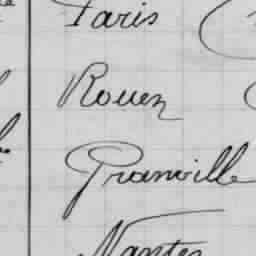 Paris
Rouen
Granville
Nantes